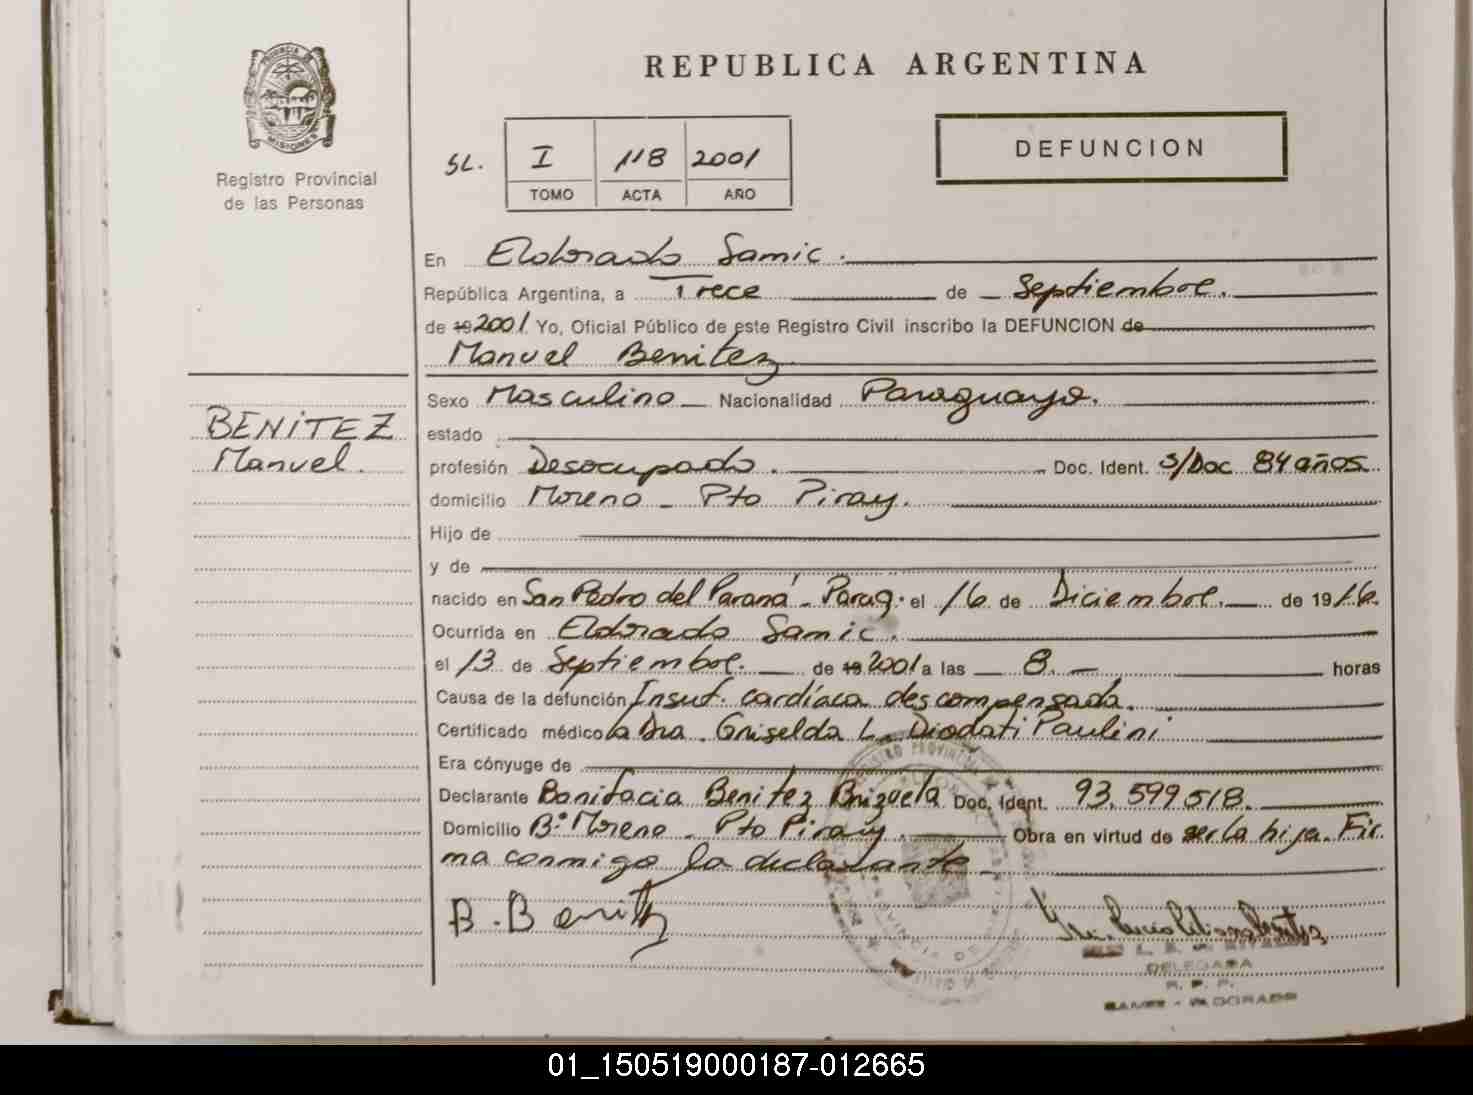 REPUBLICA ARGENTINA
PROVINCIA DE
MISIONES
Registro Provincial
de las Personas
DEFUNCION
SL. I 118 2001
TOMO ACTA AÑO
En Eldorado Samic.
República Argentina, a Trece de Septiembre.
de 19 2001 Yo, Oficial Público de este Registro Civil inscribo la DEFUNCION de
Manuel Benitez
BENITEZ
Manuel.
Sexo Masculino Nacionalidad Paraguaya.
estado
profesión Desocupado. Doc. Ident. S/Doc 84 años
domicilio Moreno - Pto Piray.
Hijo de
y de
nacido en San Pedro del Paraná - Parag. el 16 de Diciembre. de 1916.
Ocurrida en Eldorado Samic.
el 13 de Septiembre. de 19 2001 a las 8. horas
Causa de la defunción Insuf. cardíaca descompensada.
Certificado médico la Dra. Griselda L. Diodati Paulini
Era cónyuge de
Declarante Bonifacia Benitez Brizuela Doc. Ident. 93.599518.
Domicilio Bº Moreno - Pto Piray. Obra en virtud de ser la hija. Fir
ma conmigo la declarante
B. Benitz
DELEGADA
R. P. P.
SAMIC - ELDORADO
01_150519000187-012665